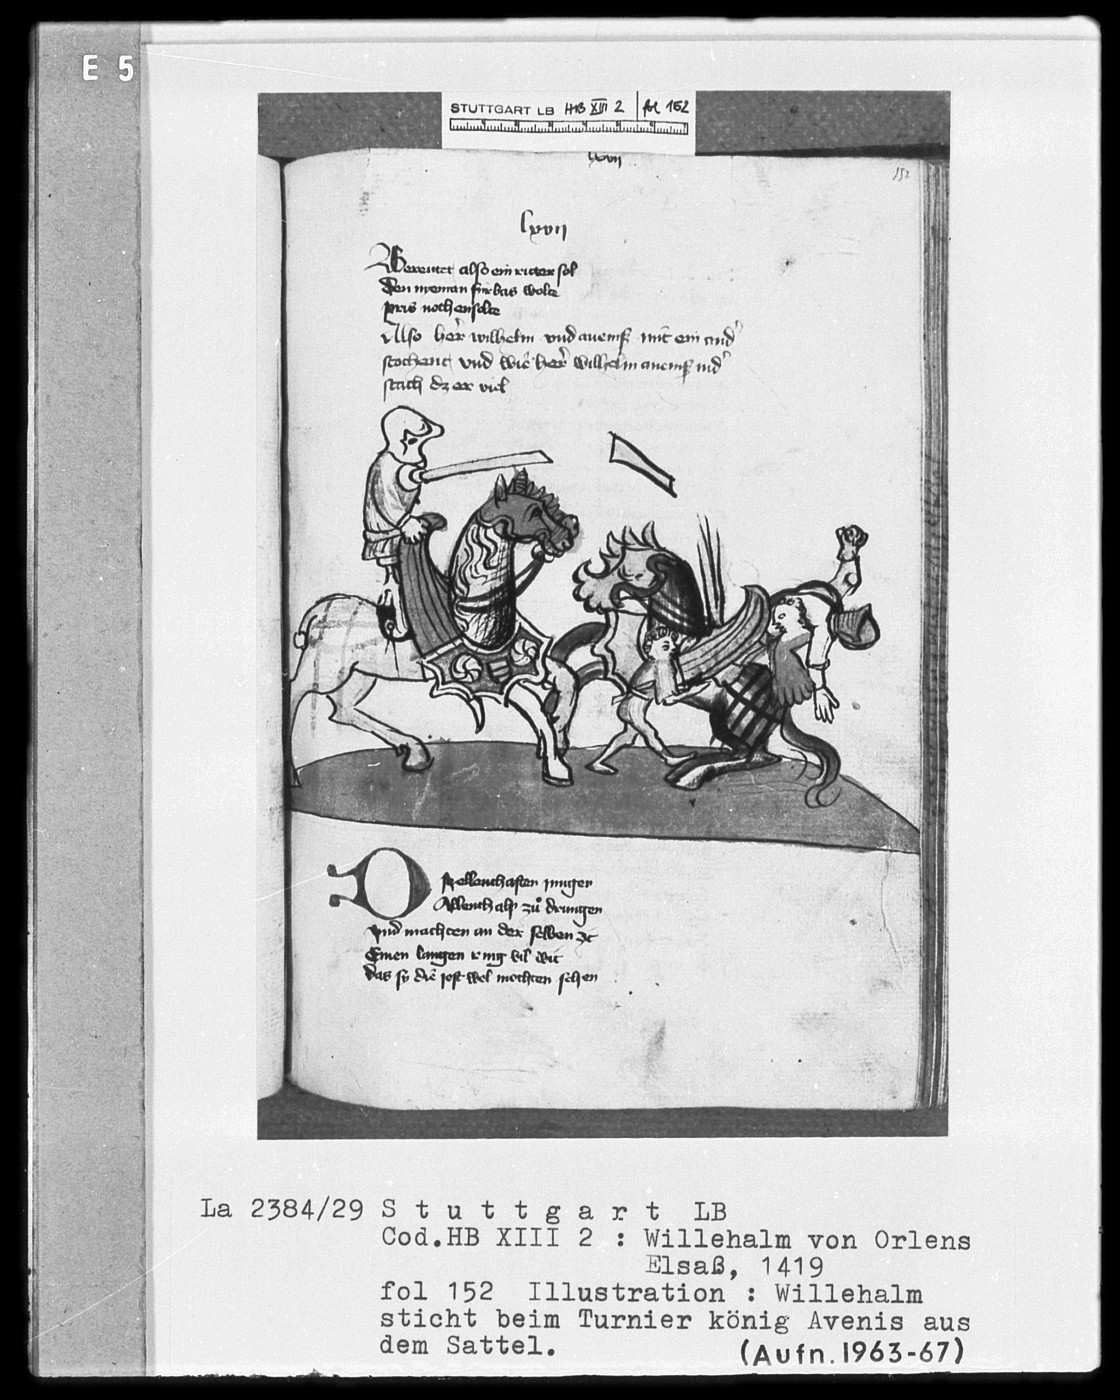 E 5
STUTTGART LB HB XIII 2 fol 152
lxvii
152
lxvii
also ein ritter sol
Den nyeman fúrbas wolte
pris noch enselte
Also her wilhelm vnd auenis mit ein and
stochent vnd wie her wilhelm auenis nid
stach dz er viel
D
pellenthafften junger
Allenthalp zů drungen
vnd machten an der selben zit
Einen langen ring vil wit
Das sy die jost wol mochten sehen
La 2384/29 Stuttgart LB
Cod.HB XIII 2 : Willehalm von Orlens
Elsaß, 1419
fol 152 Illustration : Willehalm
sticht beim Turnier könig Avenis aus
dem Sattel. (Aufn.1963-67)